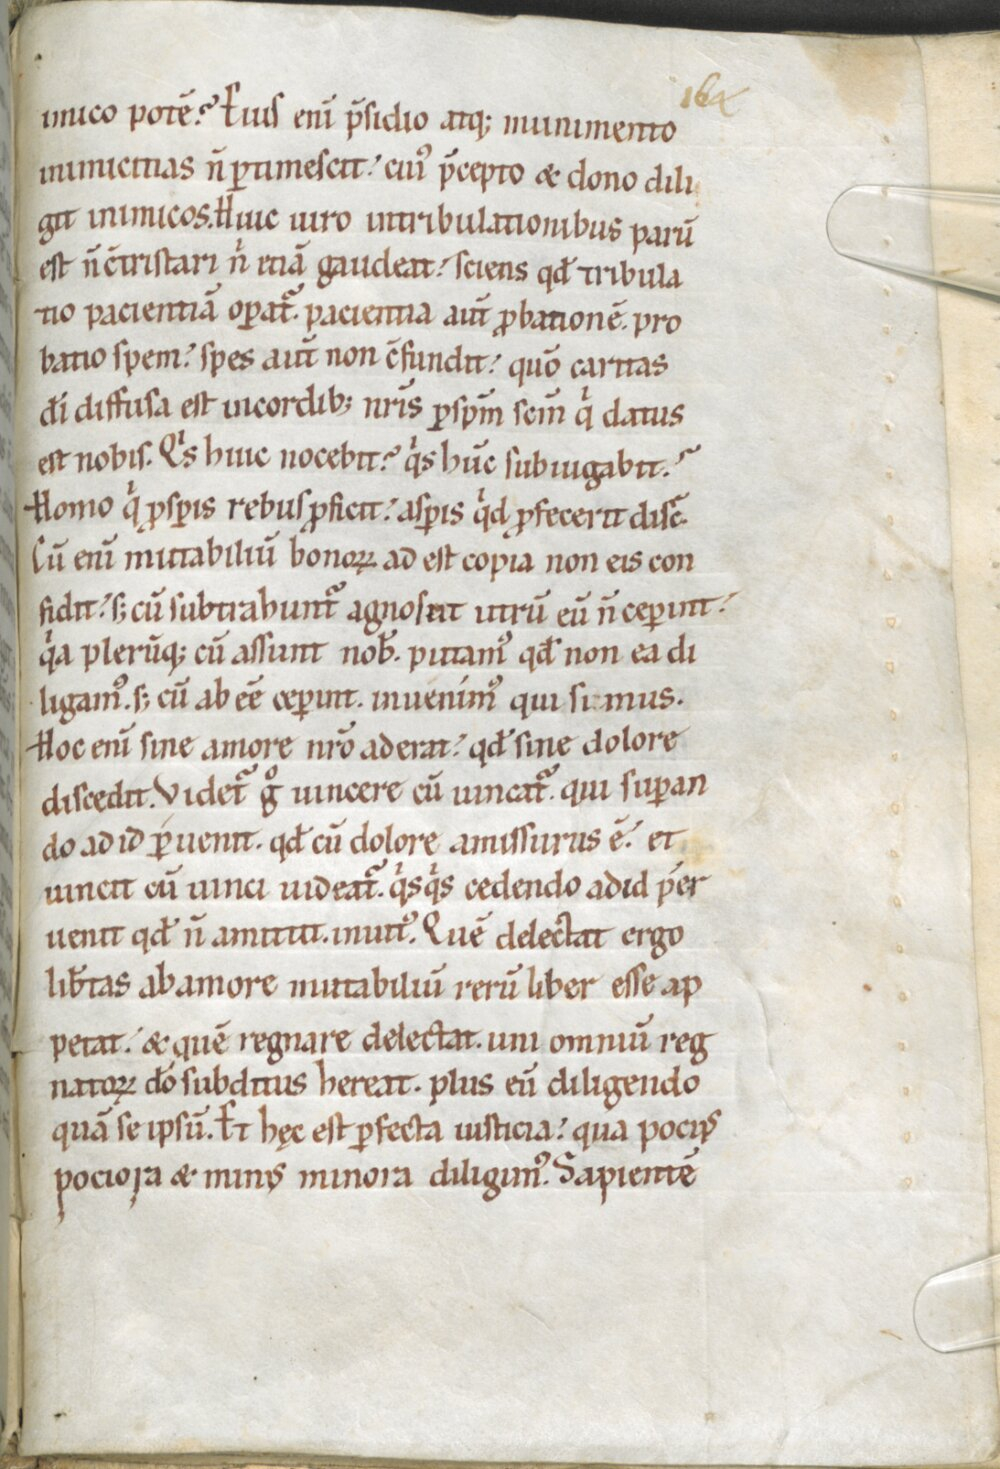 164
unico potē? Eius enī p̄sidio atq; munimento
inimicitias n̄ ꝑtimescit? cui᷒ p̄cepto & dono dili
git inimicos. Huic uiro intribulationibus parū
est n̄ c̄tristari nͥ etiā gaudeat? sciens qđ tribula
tio pacientiā oꝑat᷑. pacientia aut̄ ꝓbationē. pro
batio spem? spes aut̄ non c̄fundit? quō caritas
dī diffusa est incordib; nr̄is ꝑ sp̄m sc̄m qͥ datus
est nobis. Qͥs huic nocebit? qͥs hūc subiugabit?
Homo qͥ ꝓsꝑis rebus ꝓficit? asꝑis qͥd ꝓfecerit disc̄.
Cū enī mutabiliū bonoꝝ ad est copia non eis con
fidit? s; cū subtrahunt᷑ agnoscit utrū eū n̄ ceꝑint?
qͥa plerūq; cū assunt nob̄. putam᷒ qđ non ea di
ligam᷒. s; cū ab eē ceꝑint. inuenim᷒ qui sumus.
Hoc enī sine amore nr̄o aderat? qđ sine dolore
discedit. Videt᷑ gͦ uincere cū uincat᷑. qui suꝑan
do ad id ꝑuenit. qđ cū dolore amissurus ē? et
uincit cū uinci uideat᷑. qͥsqͥs cedendo adid ꝑ
uenit qđ n̄ amittit inuit᷒. Quē delectat ergo
lib̄tas ab amore mutabiliū rerū liber esse ap
petat? & quē regnare delectat. uni omniū reg
natoꝝ dō subditus hereat. plus eū diligendo
quā se ipsū. Et hęc est ꝑfecta iusticia? qua poci᷒
pociora & min᷒ minora diligim᷒. Sapientē